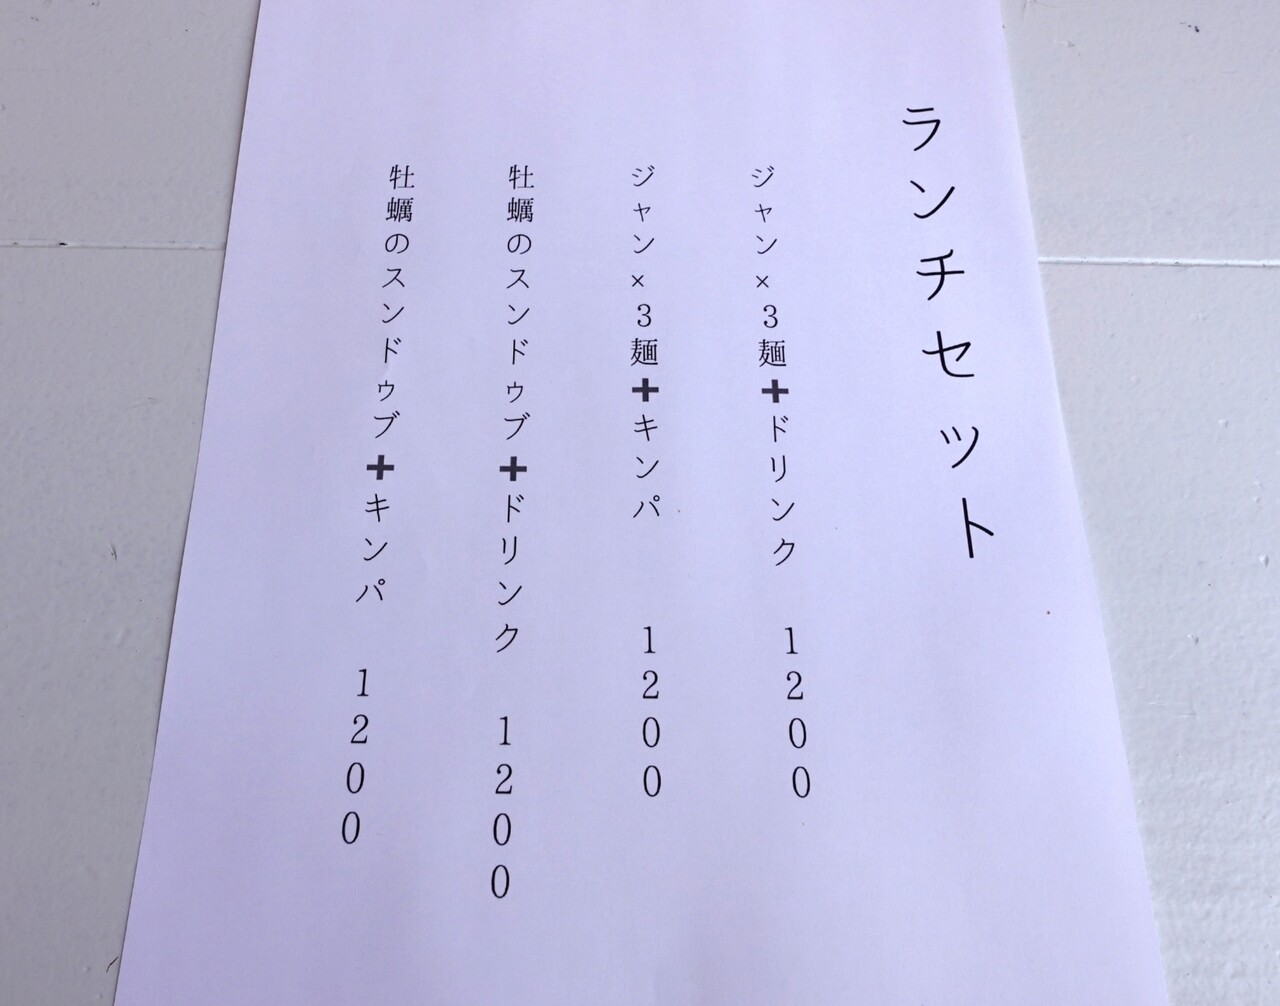 ランチセット
ジャン×３麺➕ドリンク　１２００
ジャン×３麺➕キンパ　１２００
牡蠣のスンドゥブ➕ドリンク　１２００
牡蠣のスンドゥブ➕キンパ　１２００